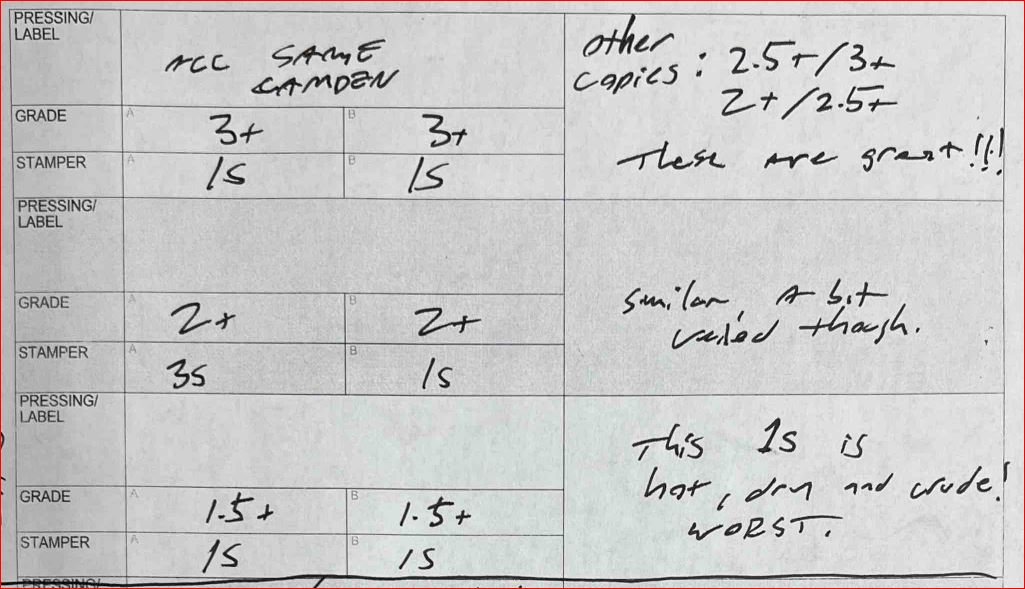 PRESSING/
LABEL
ALL SAME
CAMDEN
other
copies: 2.5+/3+
2+/2.5+
GRADE
A
3+
B
3+
These are great!!!
STAMPER
A
1s
B
1s
PRESSING/
LABEL
GRADE
A
2+
B
2+
similar, A bit
veiled though.
STAMPER
A
3s
B
1s
PRESSING/
LABEL
This 1s is
hot, dry and crude!
WORST.
GRADE
A
1.5+
B
1.5+
STAMPER
A
1s
B
1s
PRESSING/